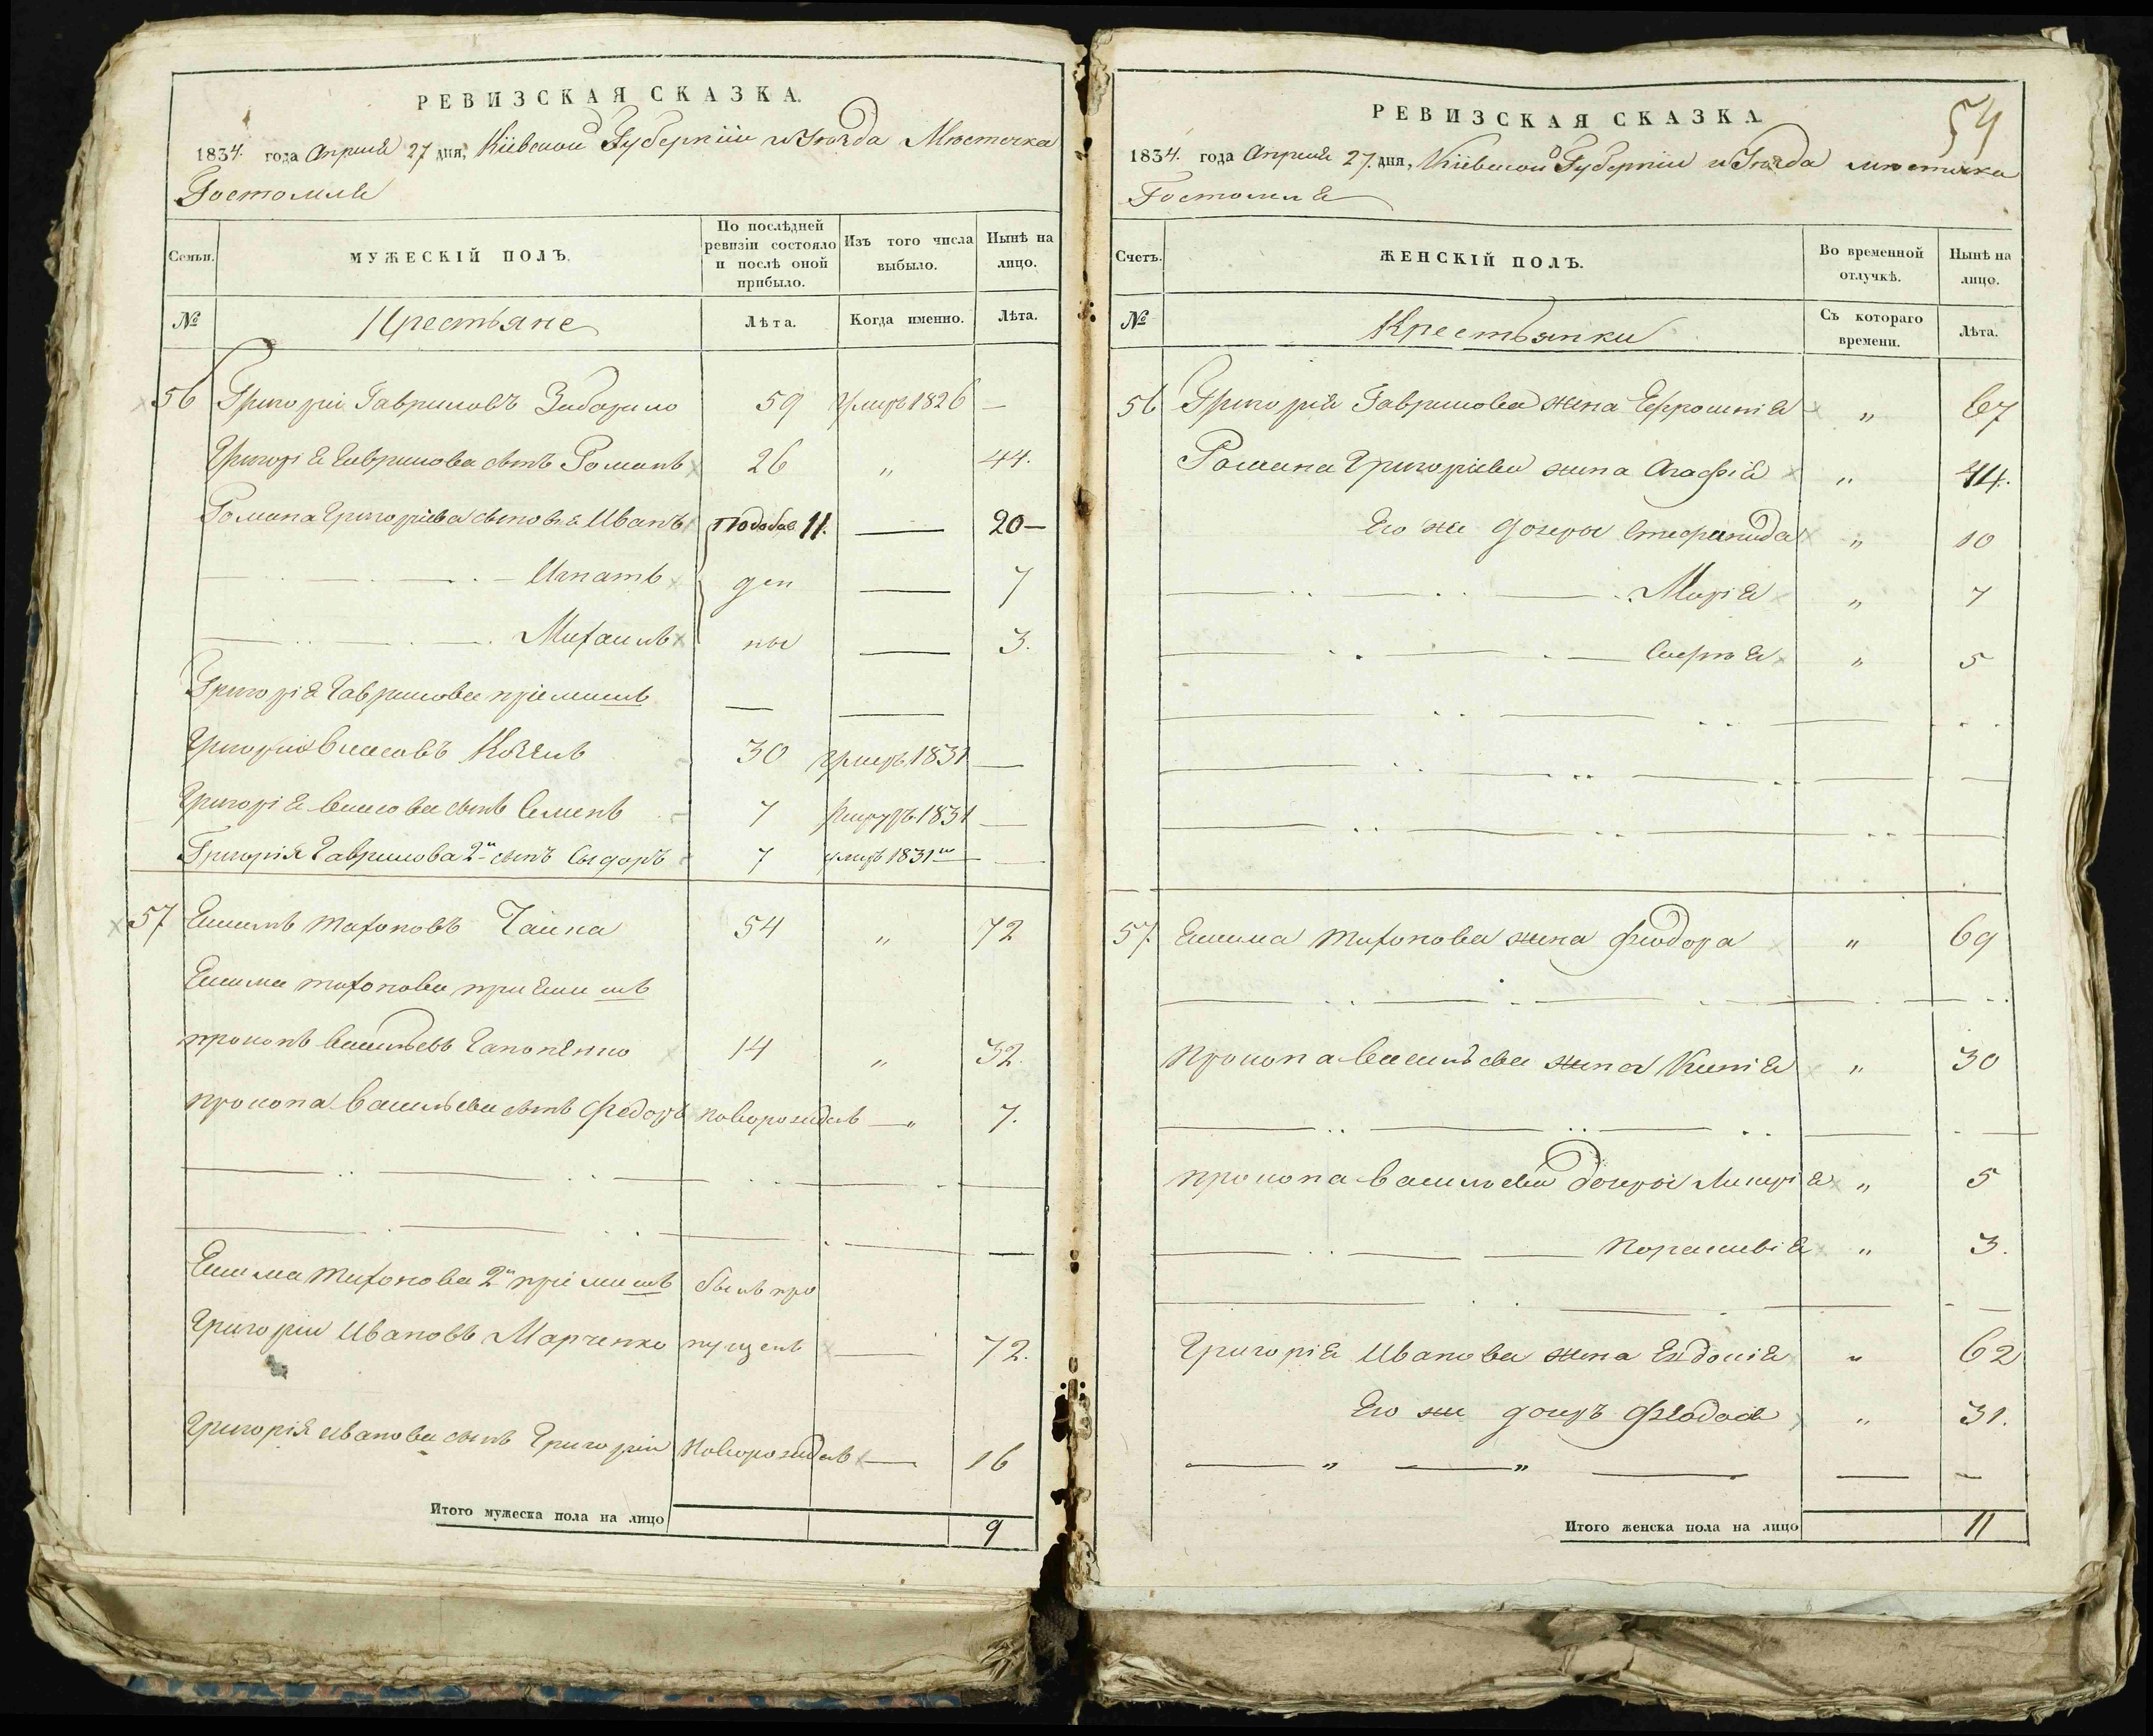 РЕВИЗСКАЯ СКАЗКА.
1834. года Апреля 27 дня, Кіевской Губерніи и Уѣзда Мѣстечка
Гостомля
Семьи.
МУЖЕСКІЙ ПОЛЪ.
По послѣдней ревизіи состояло и послѣ оной прибыло.
Изъ того числа выбыло.
Нынѣ на лицо.
№
Крестьяне
Лѣта.
Когда именно.
Лѣта.
56 Григорій Гавриловъ 59 умеръ 1826 —
Григорія Гаврилова сынъ Романъ 26 " 44.
Романа Григоріева сыновя Иванъ 11. — 20—
Игнатъ — 7
Михаилъ — 3.
Григорія Гаврилова пріемышъ — —
Григорій Власовъ 30 умеръ 1831 —
Григорія Власова сынъ Семенъ 7 1831 —
Григорія Гаврилова 2й сынъ Сыдоръ 7 умеръ 1831го —
57 Екимъ Тихоновъ Чайка 54 " 72
Екима Тихонова приемышъ
Прокопъ Васильевъ Гапоненко 14 " 32.
Прокопа Васильева сынъ Федоръ новорожденъ — " 7.
Екима Тихонова 2й пріемышъ былъ про
Григорій Ивановъ Марченко пущенъ — 72.
Григорія Иванова сынъ Григорій новорожденъ — 16
Итого мужеска пола на лицо 9
54
РЕВИЗСКАЯ СКАЗКА
1834. года Апреля 27. дня, Кіевской Губерніи и Уѣзда мѣстечка
Гостомля
Счетъ.
ЖЕНСКІЙ ПОЛЪ.
Во временной отлучкѣ.
Нынѣ на лицо.
№
Крестьянки
Съ котораго времени.
Лѣта.
56 Григорія Гаврилова жена Ефросинія " 67
Романа Григоріева жена Агафія " 44.
Его же дочери Стефанида " 10
Марія " 7
" 5
57. Екима Тихонова жена Феодора " 69
Прокопа Васильева жена Ксенія " 30
Прокопа Васильева дочери " 5
Парасковія " 3.
Григорія Иванова жена Евдокія " 62
Его же дочь " 31.
Итого женска пола на лицо 11